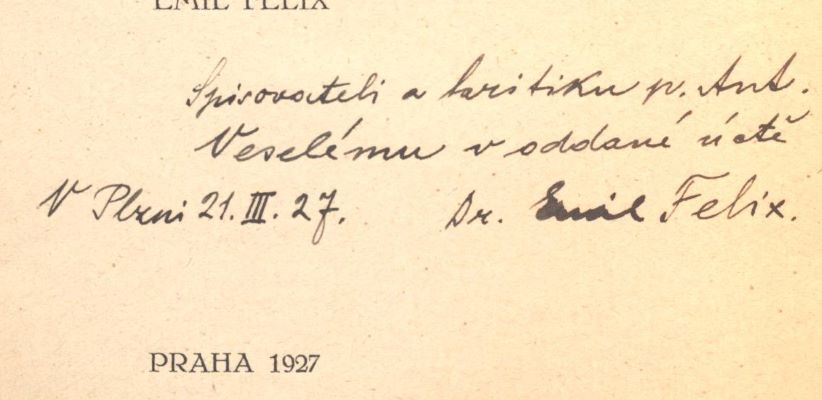 EMIL FELIX
Spisovateli a kritiku p. Ant.
Veselému v oddané úctě
V Plzni 21. III. 27. Dr. Emil Felix.
PRAHA 1927